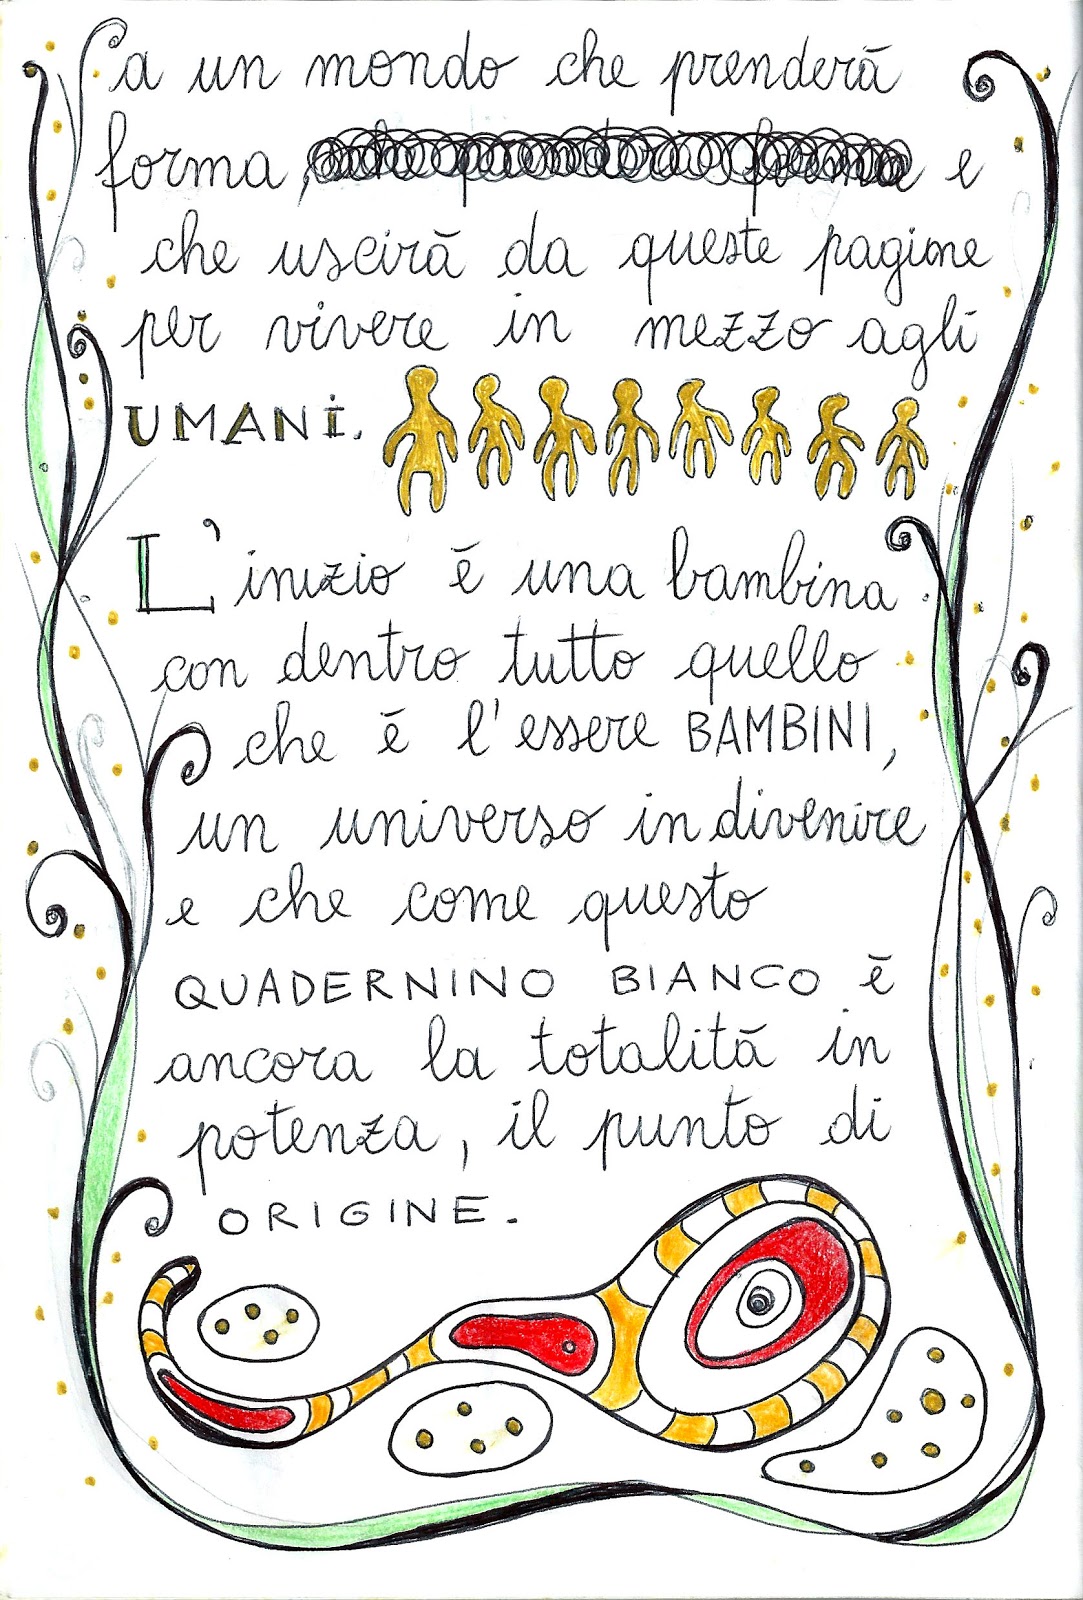 a un mondo che prenderā
forma, che prenderā forma e
che uscirā da queste pagine
per vivere in mezzo agli
UMANi.
L'inizio ē una bambina
con dentro tutto quello
che ē l'essere BAMBINI,
un universo in divenire
e che come questo
QUADERNINO BIANCO ē
ancora la totalitā in
potenza, il punto di
ORIGINE.